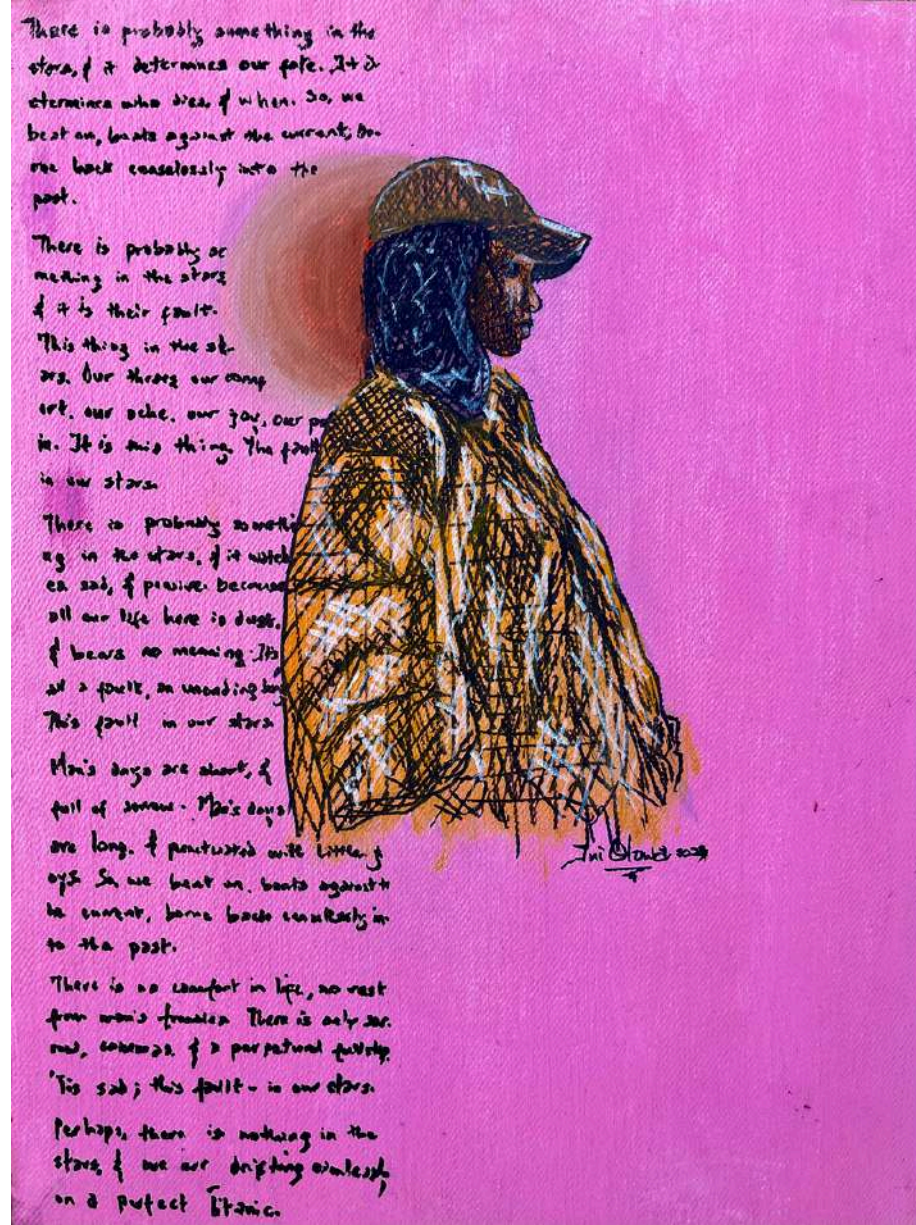 There is probably something in the
stars, & it determines our fate. It d
etermines who dies, & when. So, we
beat on, boats against the current, bo
rne back ceaselessly into the
past.
There is probably so
mething in the stars
& it is their fault.
This thing in the st-
ars. Our our comf
ort, our ache, our joy, our pa
in. It is this thing. The fault
in our stars.
There is probably somethi
ng in the stars, & it watch
es sad, & pensive. because
all our life here is dust,
& bears no meaning. Its
all a fault, an
This fault in our stars
Man's days are short, &
full of sorrow. Man's days
are long. & punctuated with little j
oys. So, we beat on, boats against t
he current, borne back ceaselessly in
to the past.
There is no comfort in life, no rest
from man's troubles. There is only sor-
row, commas, & a perpetual
'Tis sad; this fault - in our stars.
Perhaps, there is nothing in the
stars, & we are drifting aimlessly,
on a perfect Titanic.
2024